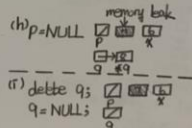 memory leak
(h) p=NULL
p
x
q *q
(i) delete q;
p x
q=NULL;
q